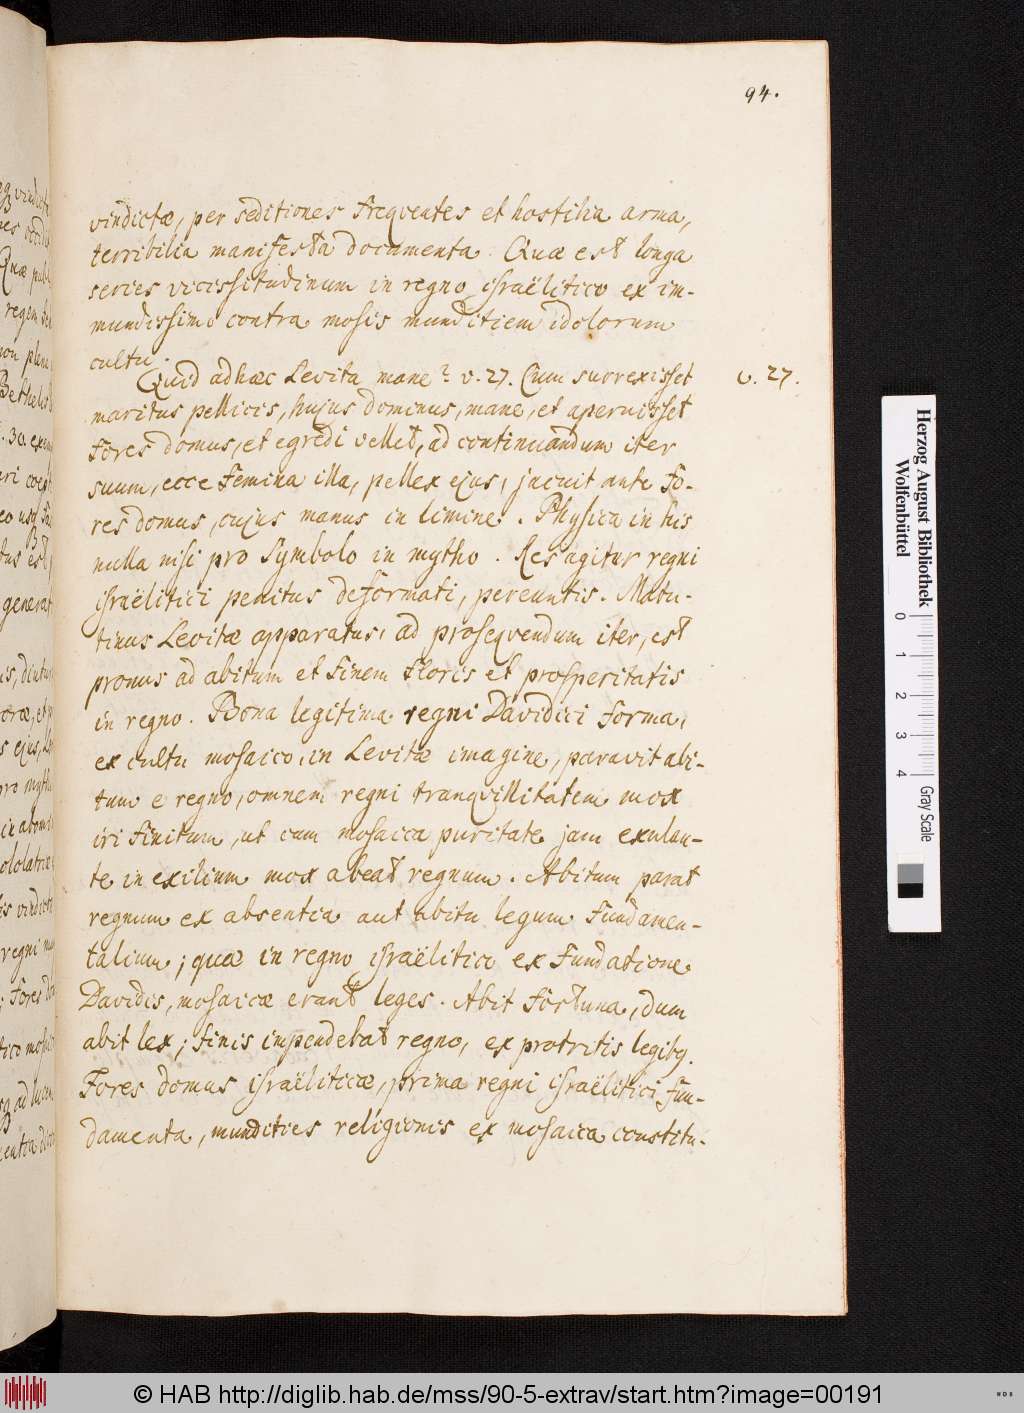 94.
vindictæ, per seditiones frequentes et hostilia arma,
terribilia manifesta documenta. Quæ est longa
series vicissitudinum in regno israëlitico ex im-
mundissimo contra mosis munditiem idolorum
cultu.
Quid ad hæc Levita mane? v. 27. Cum surrexisset
v. 27.
maritus pellicis, hujus dominus, mane, et aperuisset
fores domus, et egredi vellet, ad continuandum iter
suum, ecce femina illa, pellex ejus, jacuit ante fo-
res domus, cujus manus in limine. Physica in his
nulla nisi pro symbolo in mytho. Res agitur regni
israëlitici penitus deformati, pereuntis. Matu-
tinus Levitæ apparatus, ad prosequendum iter, est
pronus ad abitum et finem floris et prosperitatis
in regno. Bona legitima regni Davidici forma,
ex cultu mosaico, in Levitæ imagine, paravit abi-
tum e regno, omnem regni tranquillitatem mox
iri finitum, ut cum mosaica puritate jam exulan-
te in exilium mox abeat regnum. Abitum parat
regnum ex absentia aut abitu legum fundamen-
talium; quæ in regno israëlitico ex fundatione
Davidis, mosaicæ erant leges. Abit fortuna, dum
abit lex; finis impendebat regno, ex protritis legibq.
Fores domus israëliticæ, prima regni israëlitici fun-
damenta, mundities religionis ex mosaica constitu-
Herzog August Bibliothek
Wolfenbüttel
0 1 2 3 4 Gray Scale
© HAB http://diglib.hab.de/mss/90-5-extrav/start.htm?image=00191